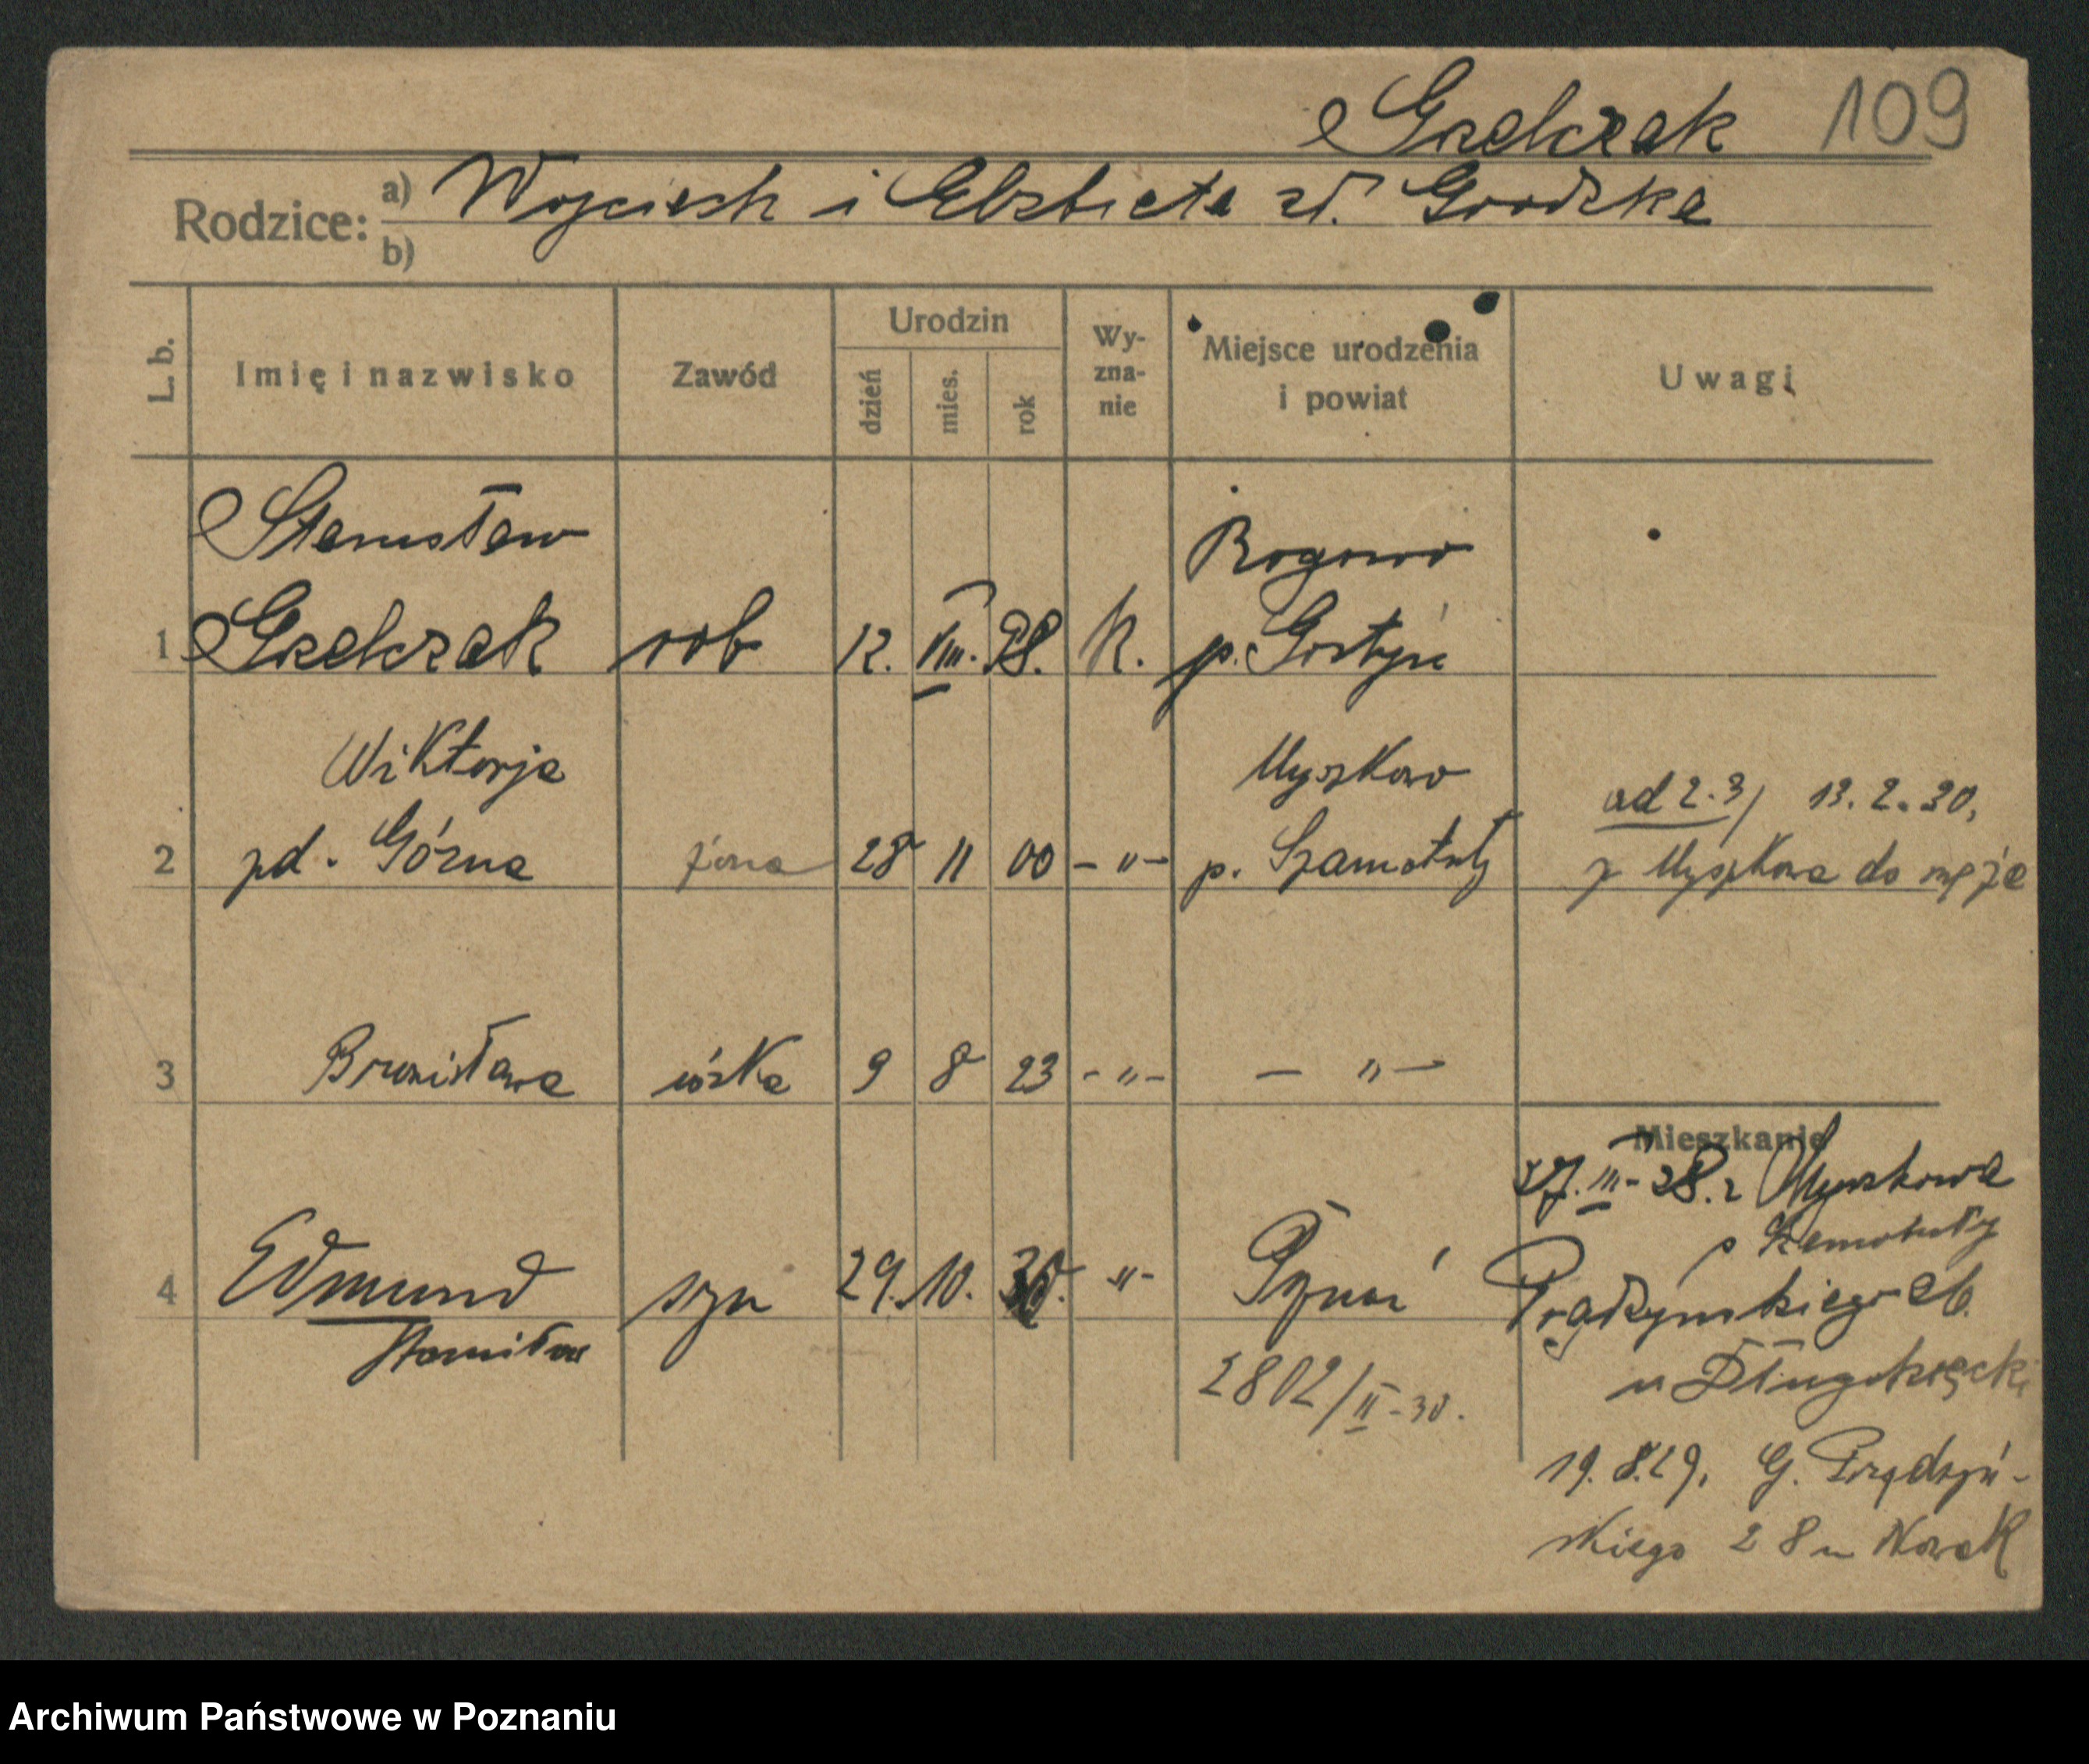 Grelczak 109
Rodzice: a) Wojciech i Elżbieta zd. Grodzka
b)
L. b. Imię i nazwisko Zawód Urodzin dzień mies. rok Wy-zna-nie Miejsce urodzenia i powiat Uwagi
Stanisław Rogowo
1 Grelczak rob 12. VIII. 98. k. p. Gostyń
Wiktorja Myszkowo ad 2.3/ 13.2.30,
2 zd. Górna żona 28 11 00 - " - p. Szamotuły z Myszkowa do męża
3 Bronisława córka 9 8 23 - " - - " -
Mieszkanie
27. III. 28. z Myszkowa
p Szamotuły
4 Edmund syn 29. 10. 30. - " - Poznań Prądzyńskiego
Stanisław
2802/II-30. u
19.8.29, G. Prądzyń-
skiego 28 u Nowak
Archiwum Państwowe w Poznaniu